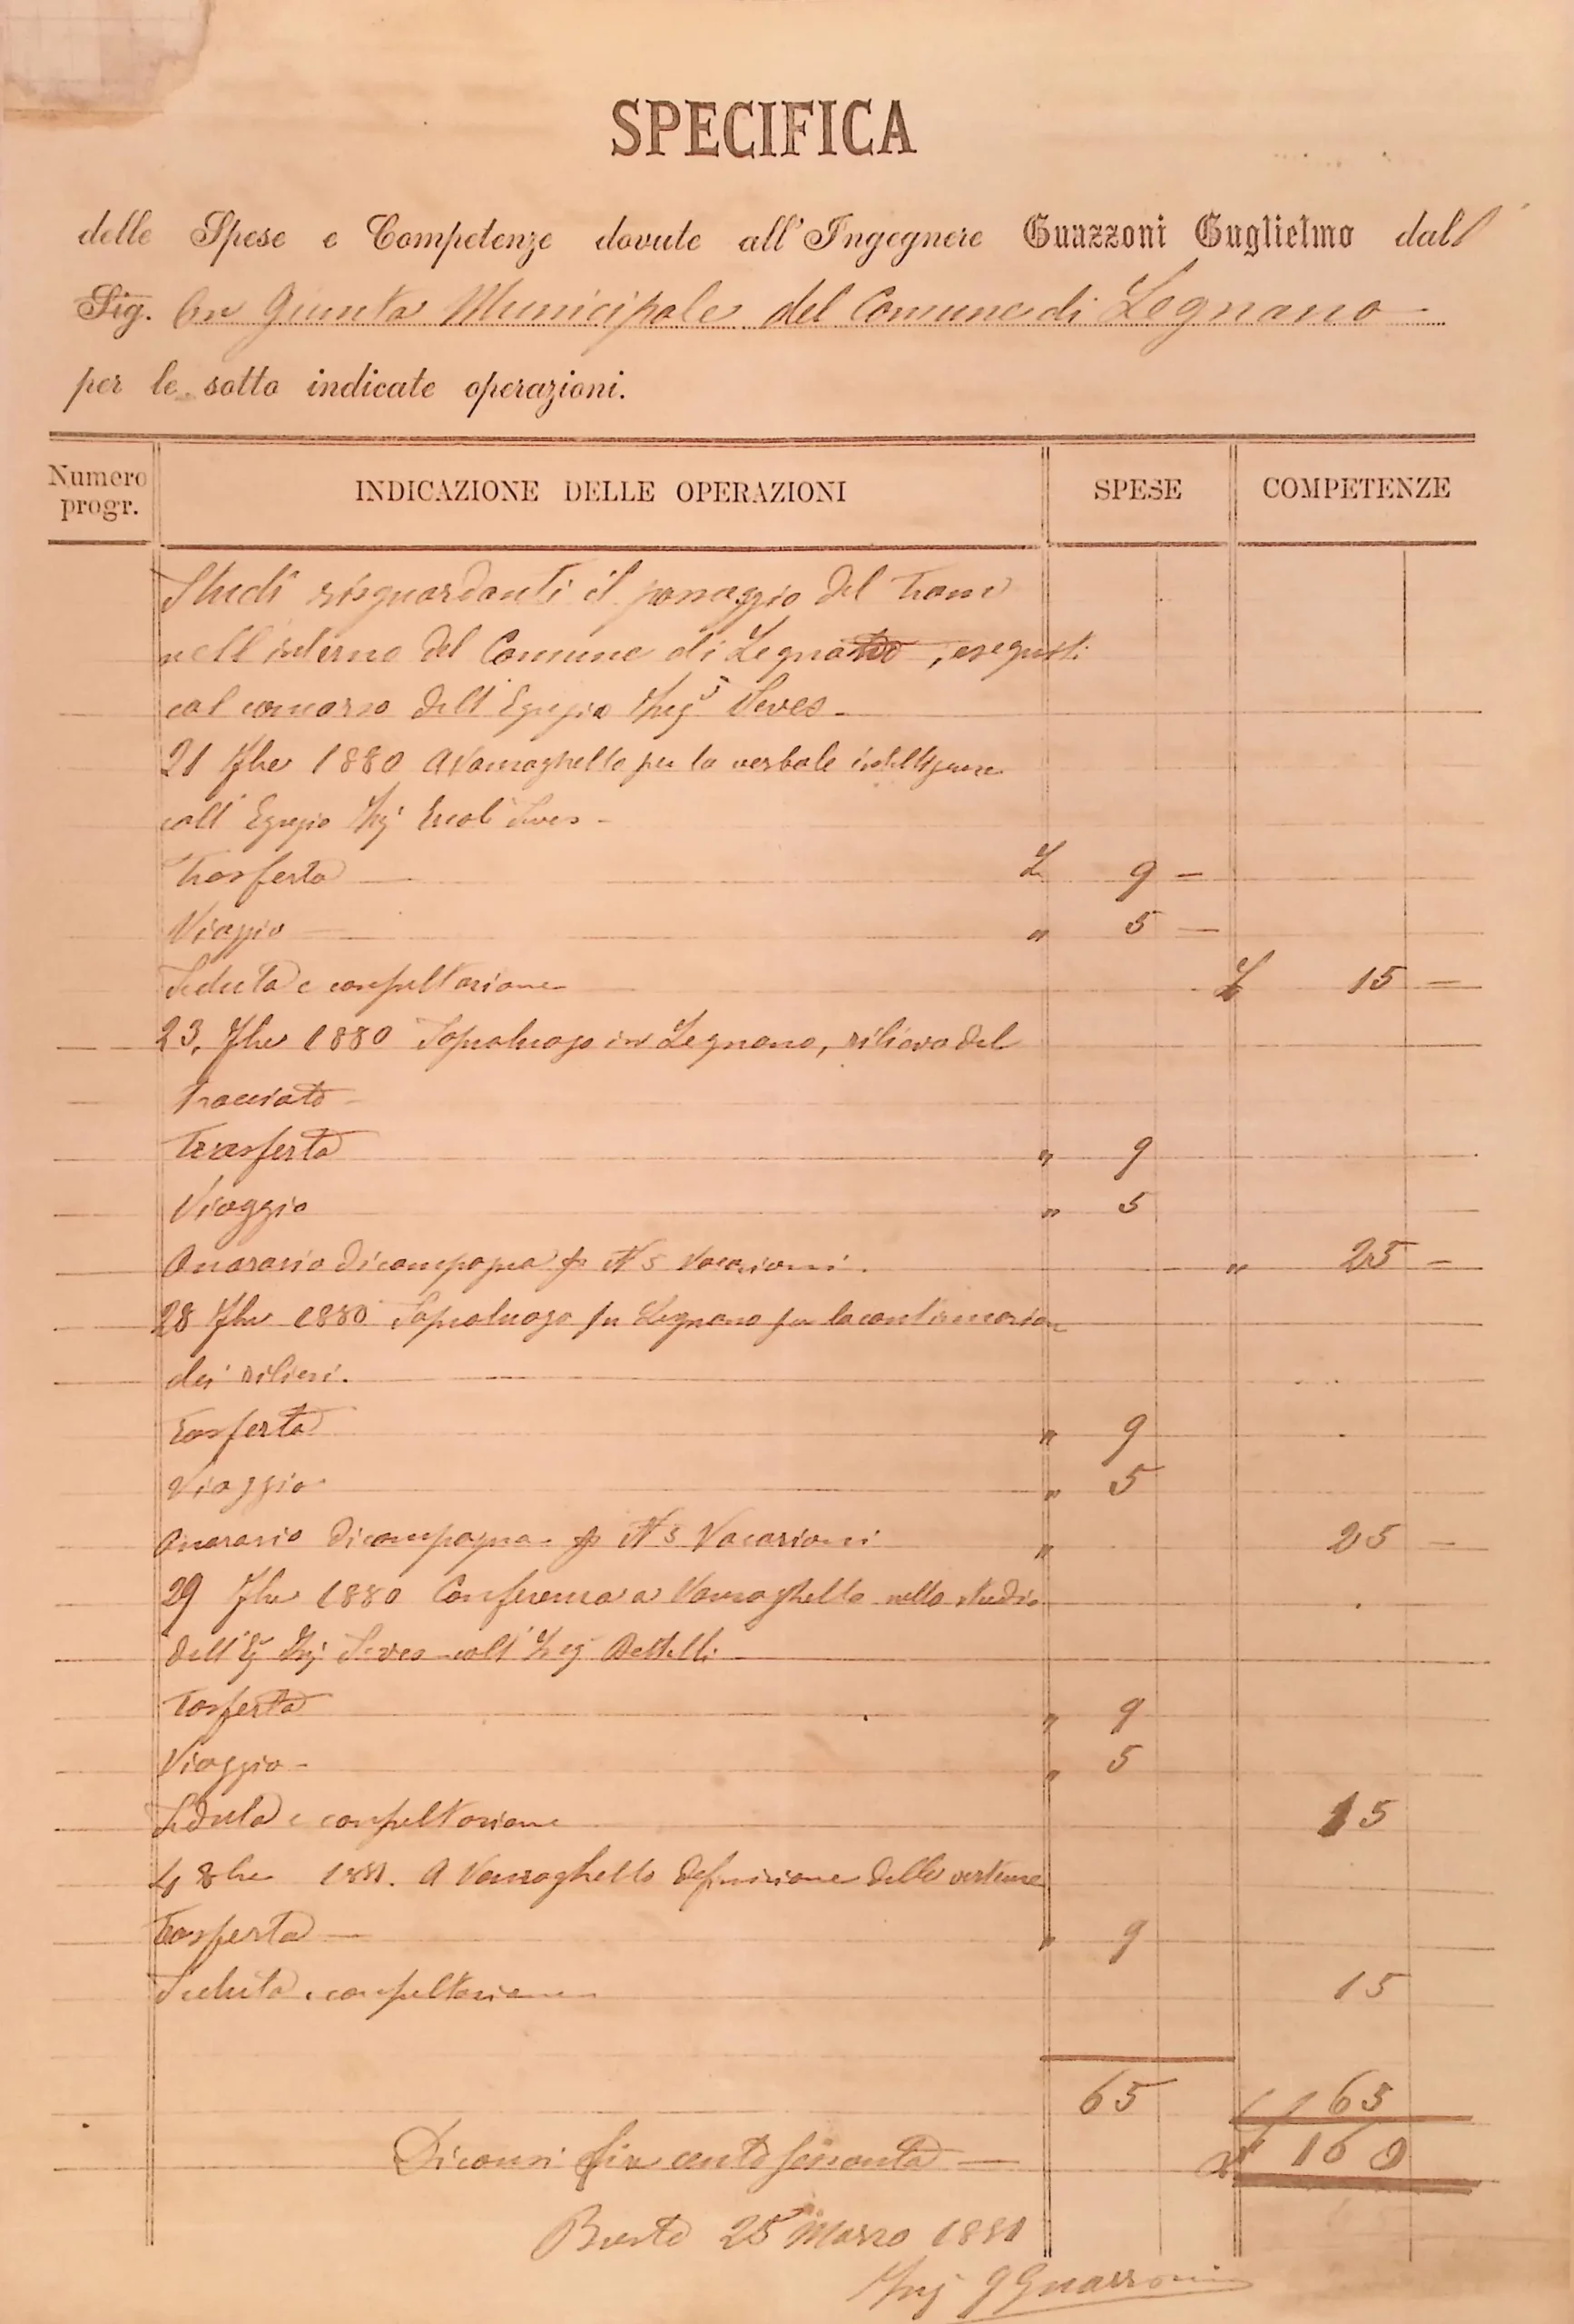 SPECIFICA
delle Spese e Competenze dovute all'Ingegnere Guazzoni Guglielmo dall
Sig. On Giunta Municipale del Comune di Legnano
per le sotto indicate operazioni.
Numero progr. INDICAZIONE DELLE OPERAZIONI SPESE COMPETENZE
Studi risguardanti il passaggio del Tram
nell'interno del Comune di Legnano, eseguiti
col concorso dell'Egregio Ing Seves
21 7bre 1880 A Vanzaghello per la verbale intelligenza
coll'Egregio Ing Ercole Seves
Trasferta L 9 -
Viaggio " 5 -
Seduta e consultazione L 15 -
23, 7bre 1880 Sopraluogo in Legnano, rilievo del
tracciato
Trasferta " 9
Viaggio " 5
Onorario di campagna p N 5 Vacazioni. " 25 -
28 7bre 1880 Sopraluogo in Legnano per la continuazion
dei rilievi.
Trasferta " 9
Viaggio " 5
Onorario di campagna p N 5 Vacazioni " 25 -
29 7bre 1880 Conferenza a Vanzaghello nello studio
dell'Eg Ing Seves coll'Ing
Trasferta " 9
Viaggio " 5
Seduta e consultazione 15
4 8bre A Vanzaghello definizione delle vertenze
Trasferta " 9
Seduta e consultazione 15
65 65
Diconsi lire cento sessanta L 160
Busto 25 Marzo 1881
Ing G Guazzoni